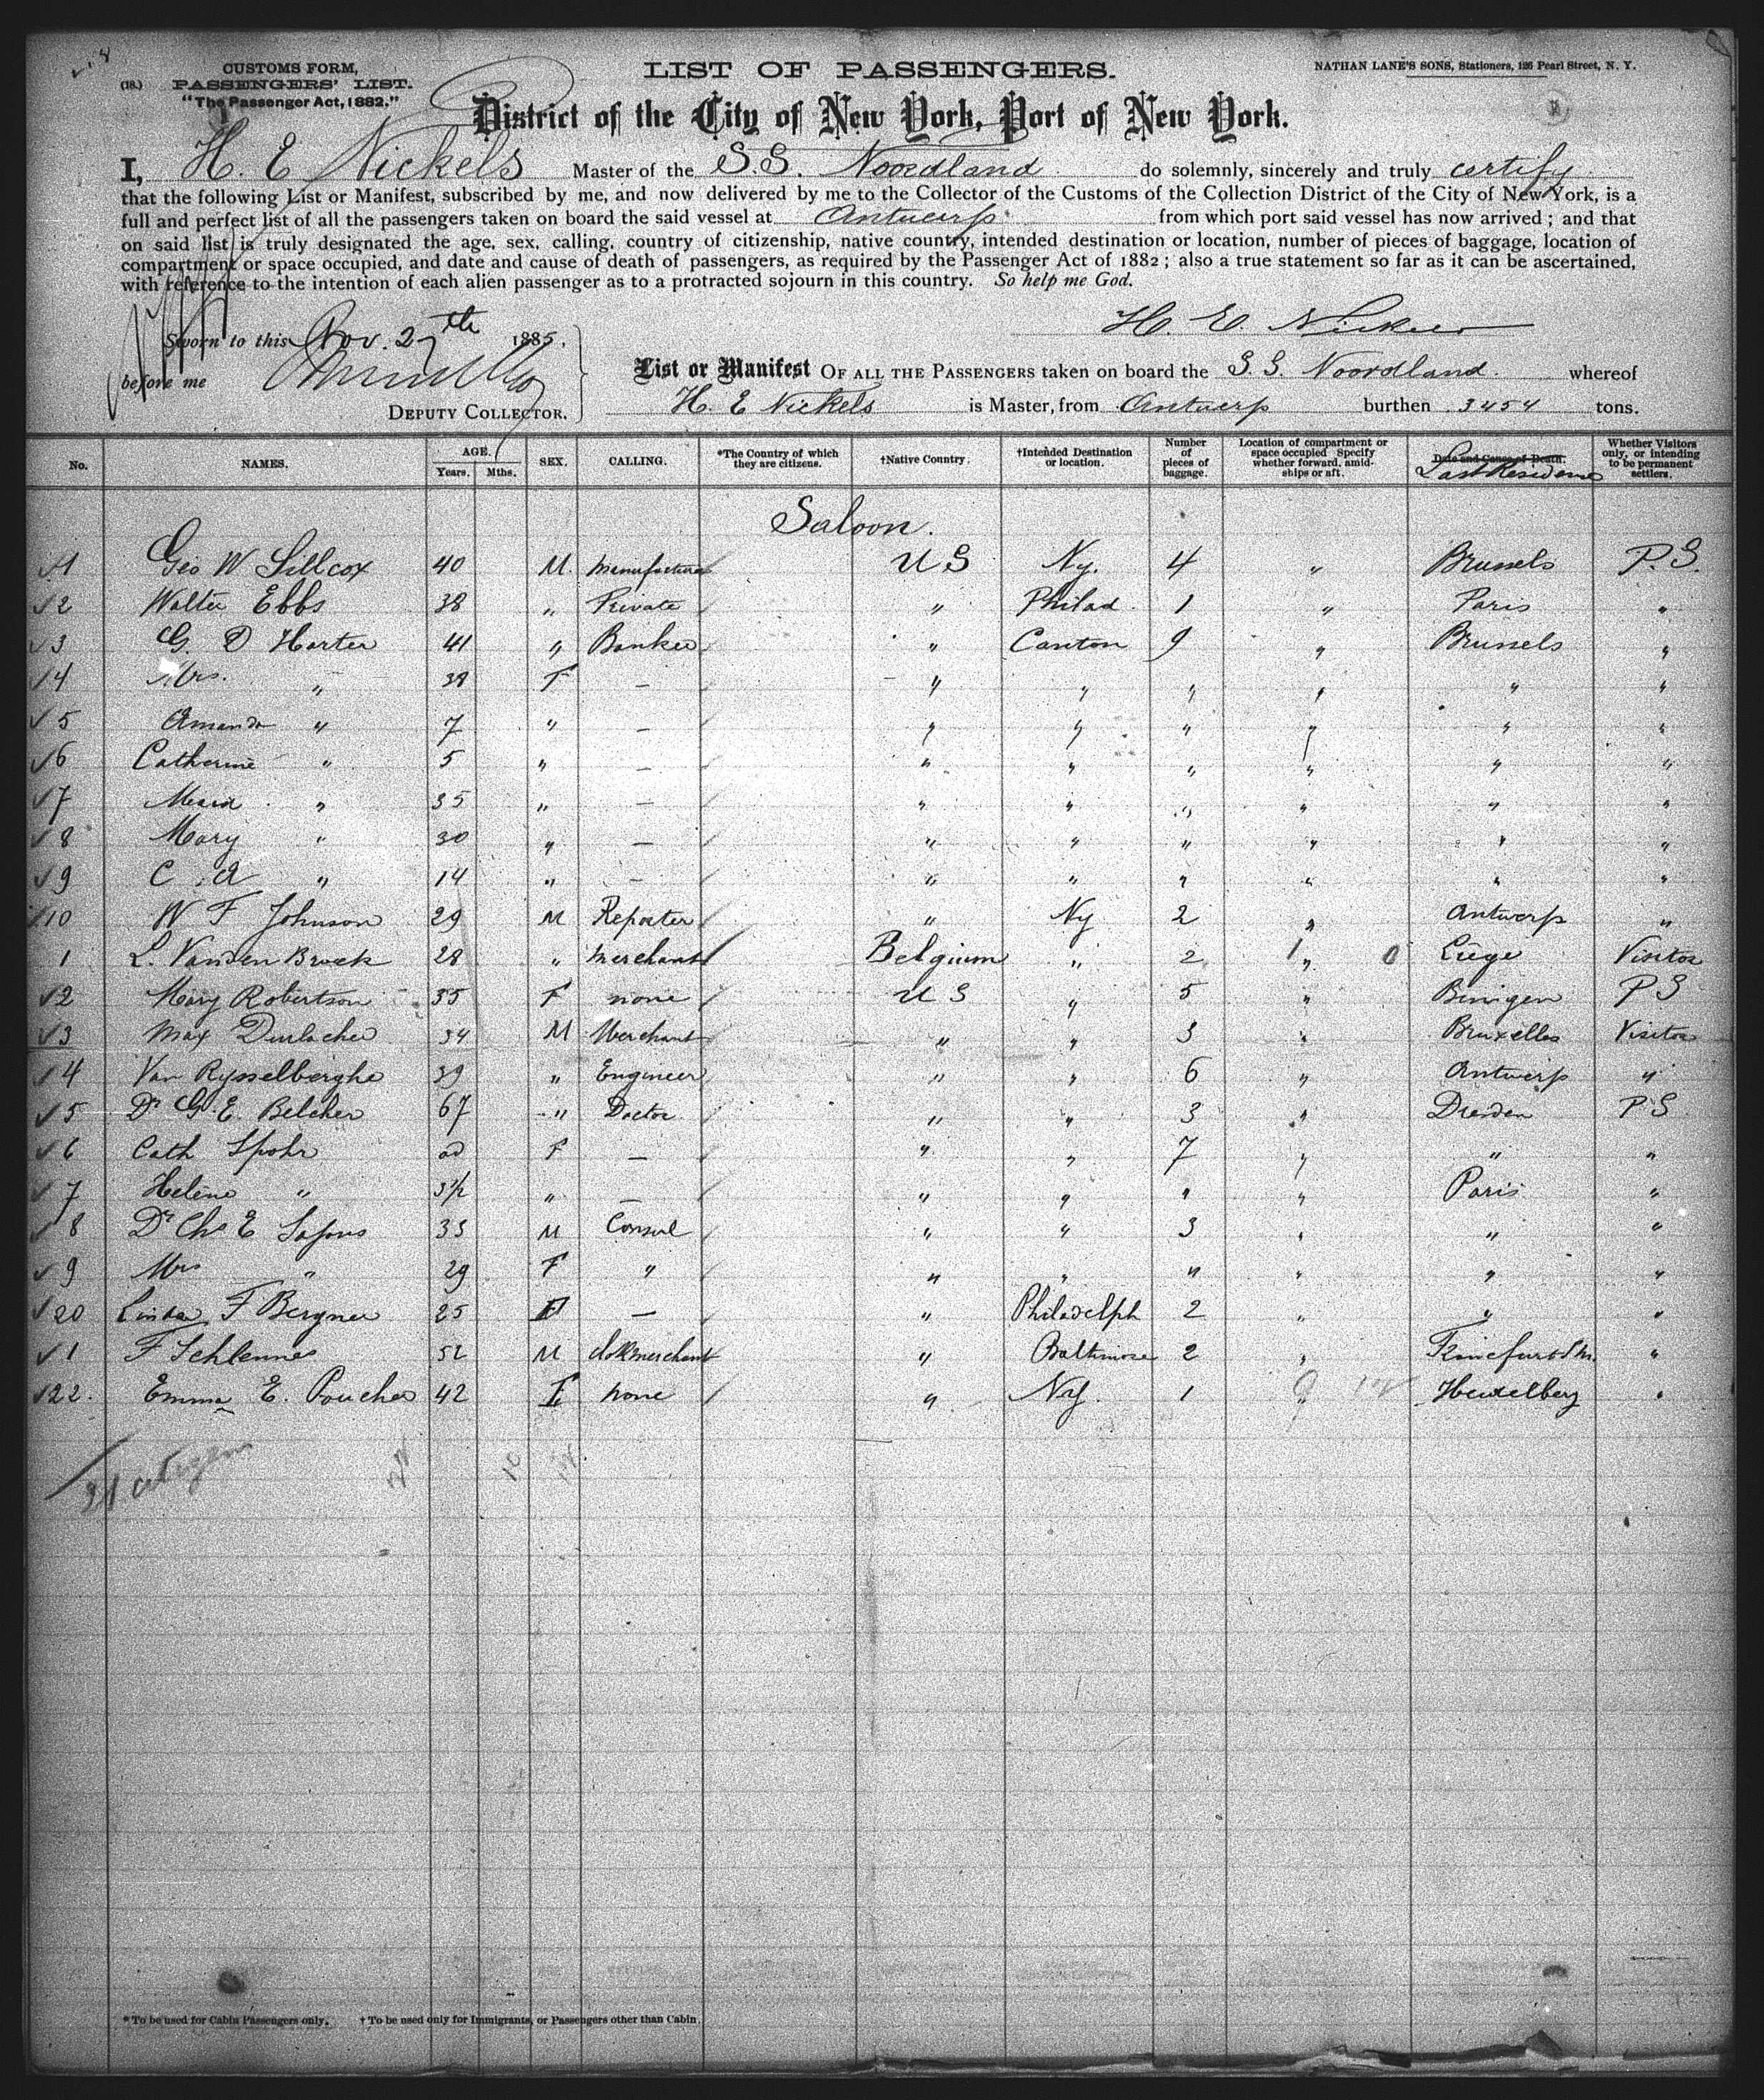 CUSTOMS FORM,
(18.) PASSENGERS' LIST.
"The Passenger Act, 1882."
LIST OF PASSENGERS.
NATHAN LANE'S SONS, Stationers, 126 Pearl Street, N. Y.
District of the City of New York, Port of New York.
I, H. E Nickels Master of the S.S. Noordland do solemnly, sincerely and truly certify
that the following List or Manifest, subscribed by me, and now delivered by me to the Collector of the Customs of the Collection District of the City of New York, is a
full and perfect list of all the passengers taken on board the said vessel at Antwerp from which port said vessel has now arrived ; and that
on said list is truly designated the age, sex, calling, country of citizenship, native country, intended destination or location, number of pieces of baggage, location of
compartment or space occupied, and date and cause of death of passengers, as required by the Passenger Act of 1882 ; also a true statement so far as it can be ascertained,
with reference to the intention of each alien passenger as to a protracted sojourn in this country. So help me God.
H. E Nickels
Sworn to this Nov. 27th 1885.
before me
DEPUTY COLLECTOR.
List or Manifest OF ALL THE PASSENGERS taken on board the S.S. Noordland whereof
H. E Nickels is Master, from Antwerp burthen 3454 tons.
No. NAMES. AGE. Years. Mths. SEX. CALLING. *The Country of which they are citizens. †Native Country. †Intended Destination or location. Number of pieces of baggage. Location of compartment or space occupied Specify whether forward, amidships or aft. Date and Cause of Death. Last Residence Whether Visitors only, or intending to be permanent settlers.
Saloon.
1 Geo W Sillcox 40 M. Manufacturer U S Ny. 4 " Brussels P.S.
2 Walter Ebbs 38 " Private " Philad. 1 " Paris "
3 G. D Harter 41 " Banker " Canton 9 " Brussels "
4 Mrs. " 38 F — " " " " " "
5 Amanda " 7 " — " " " " " "
6 Catherine " 5 " — " " " " " "
7 Maid " 35 " — " " " " " "
8 Mary " 30 " — " " " " " "
9 C. A " 14 " — " " " " " "
10 W F Johnson 29 M Reporter " Ny 2 " Antwerp "
1 L. Vanden Broek 28 " Merchant Belgium " 2 " Liege Visitor
2 Mary Robertson 35 F none U S " 5 " P S
3 Max Durlacher 34 M Merchant " " 3 " Bruxelles Visitor
4 Van Rysselberghe 39 " Engineer " " 6 " Antwerp "
5 Dr G. E. Belcher 67 " Doctor " " 3 " Dresden P S
6 Cath Spohr ad F — " " 7 " " "
7 Helene " 3½ " — " " " " Paris "
8 Dr Chs E 33 M Consul " " 3 " " "
9 Mrs " 29 F " " " " " " "
20 Linda F Bergner 25 F — " Philadelph 2 " " "
1 F Schlennes 52 M merchant " Baltimore 2 " "
22. Emma E. Poucher 42 F none " NY. 1 " Heidelberg "
21 citizen
* To be used for Cabin Passengers only. † To be used only for Immigrants, or Passengers other than Cabin.